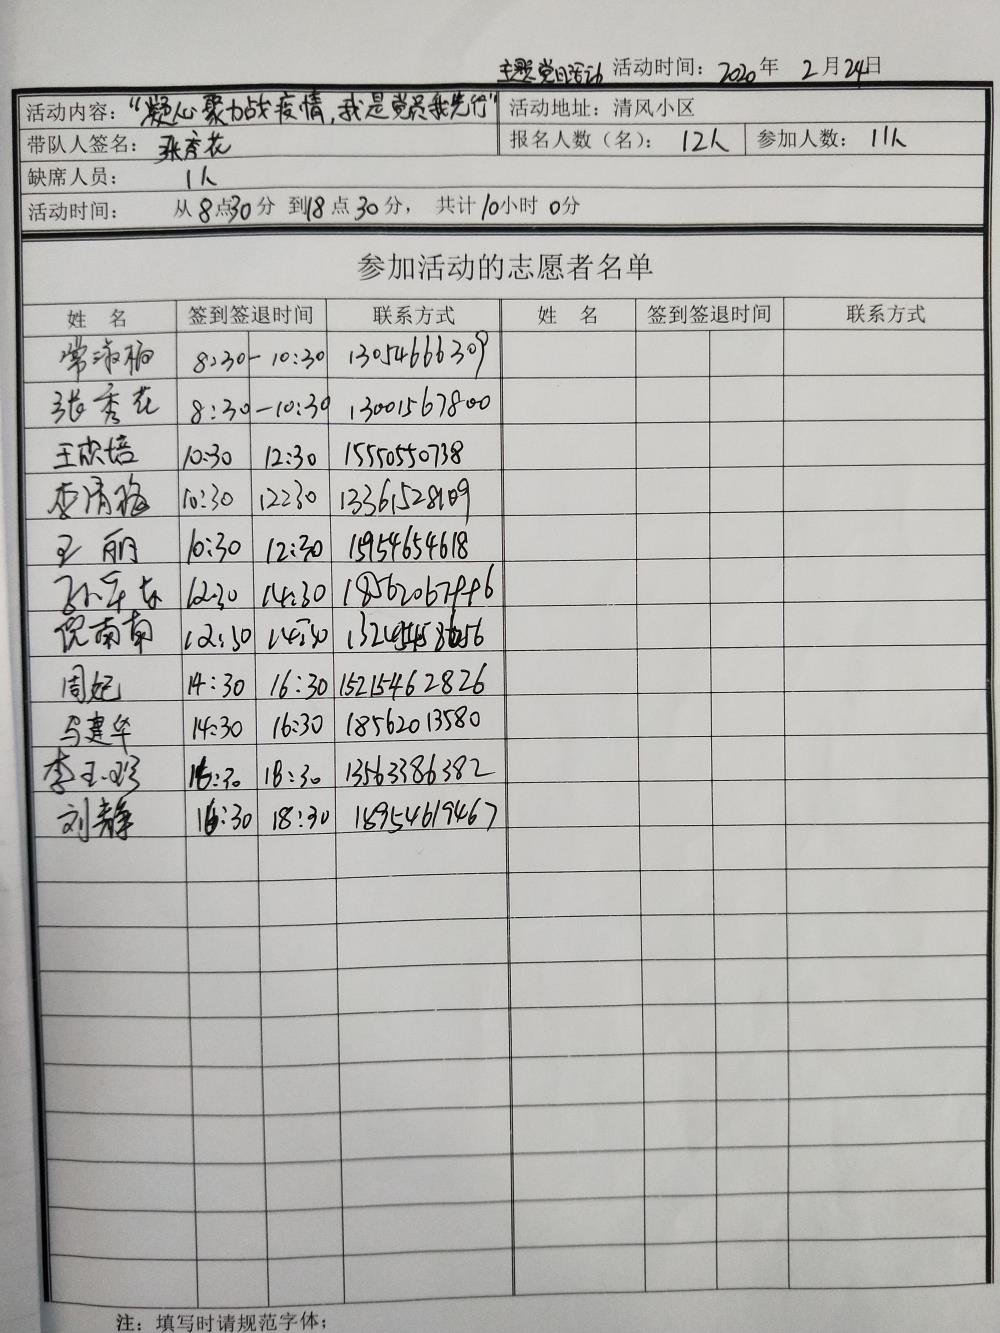 主题党日活动 活动时间：2020年 2月24日
活动内容：“凝心聚力战疫情，我是党员我先行” 活动地址：清风小区
带队人签名：张秀花 报名人数（名）：12人 参加人数：11人
缺席人员： 1人
活动时间： 从8点30分 到18点30分， 共计10小时 0分
参加活动的志愿者名单
姓 名 签到签退时间 联系方式 姓 名 签到签退时间 联系方式
常淑娟 8:30-10:30 13054666309
张秀花 8:30-10:30 13001567800
10:30 12:30 15550550738
李清梅 10:30 12:30 13361528109
王丽 10:30 12:30 15954654618
12:30 14:30
倪南南 12:30 14:30
周妮 14:30 16:30 15215462826
马建华 14:30 16:30 18562013580
李玉珍 16:30 18:30 13563386382
刘静 16:30 18:30 18954619467
注：填写时请规范字体；